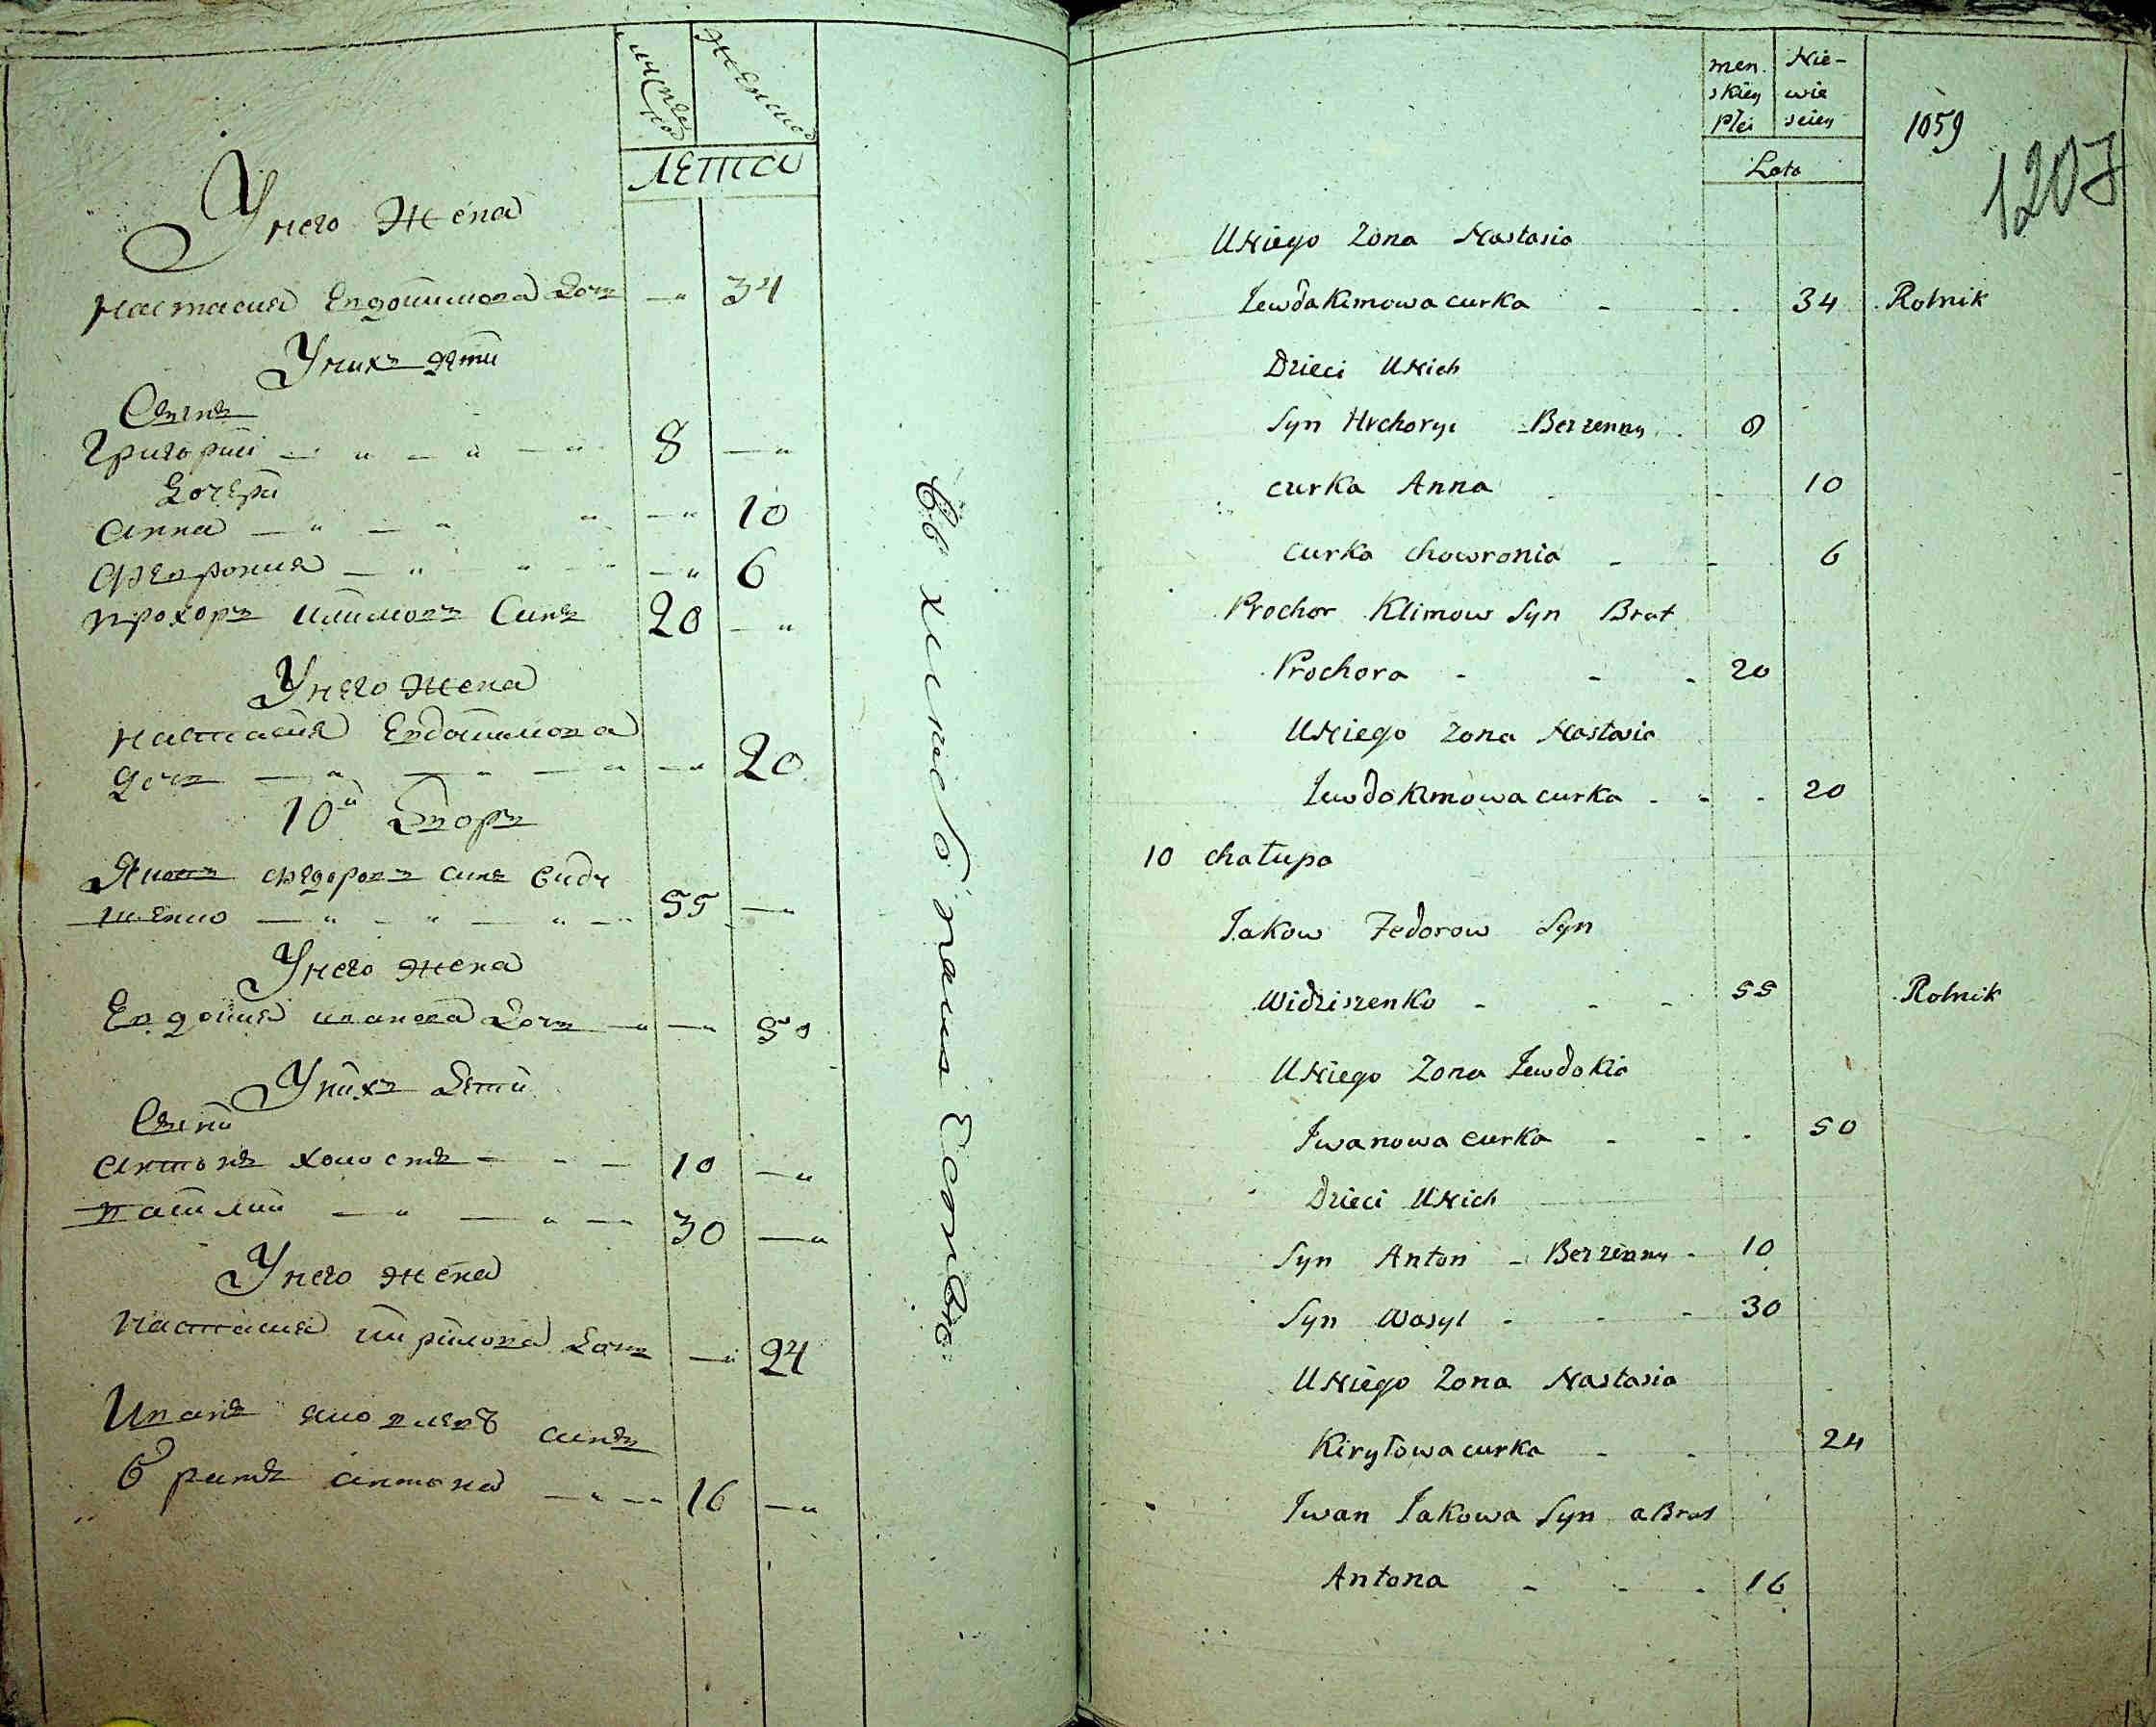 мужеска
женска
лета
У него жена
Настасия Евдокимова дочь — 34
У них дети
Сын
Григорий — 8 —
Дочери
Анна — 10
Феврония — 6
Прохоръ Климовъ Синъ 20 —
У него жена
Настасия Евдокимова
дочь — 20
10й Дворъ
Яковъ Федоровъ синъ Види
шенко — 55 —
У него жена
Евдокия Иванова дочь — 50
У нихъ дети
Сини
Антонъ холостъ — 10 —
Василий — 30 —
У него жена
Настасия Кирилова дочь — 24
Иванъ Яковлевъ синъ
Братъ Антона — 16 —
men.
skiey
płci
Nie-
wie
sciey
Lata
1059
1207
U Niego Zona Nastasia
Iewdakimowa curka - - - 34 Rolnik
Dzieci U Nich
Syn Hrehoryi - Bezzenny. 8
curka Anna - 10
curka Chowronia - - 6
Prochor Klimow Syn Brat
Prochora - - - 20
U Niego Zona Nastasia
Iewdokimowa curka - - - 20
10 chałupa
Iakow Fedorow Syn
Widziszenko - - - 55 Rolnik
U Niego Zona Iewdokia
Iwanowa curka - - - 50
Dzieci U Nich
Syn Anton - Bezzenny - 10
Syn Wasyl - - - 30
U Niego Zona Nastasia
Kiryłowa curka - - 24
Iwan Iakowa Syn a Brat
Antona - - - 16